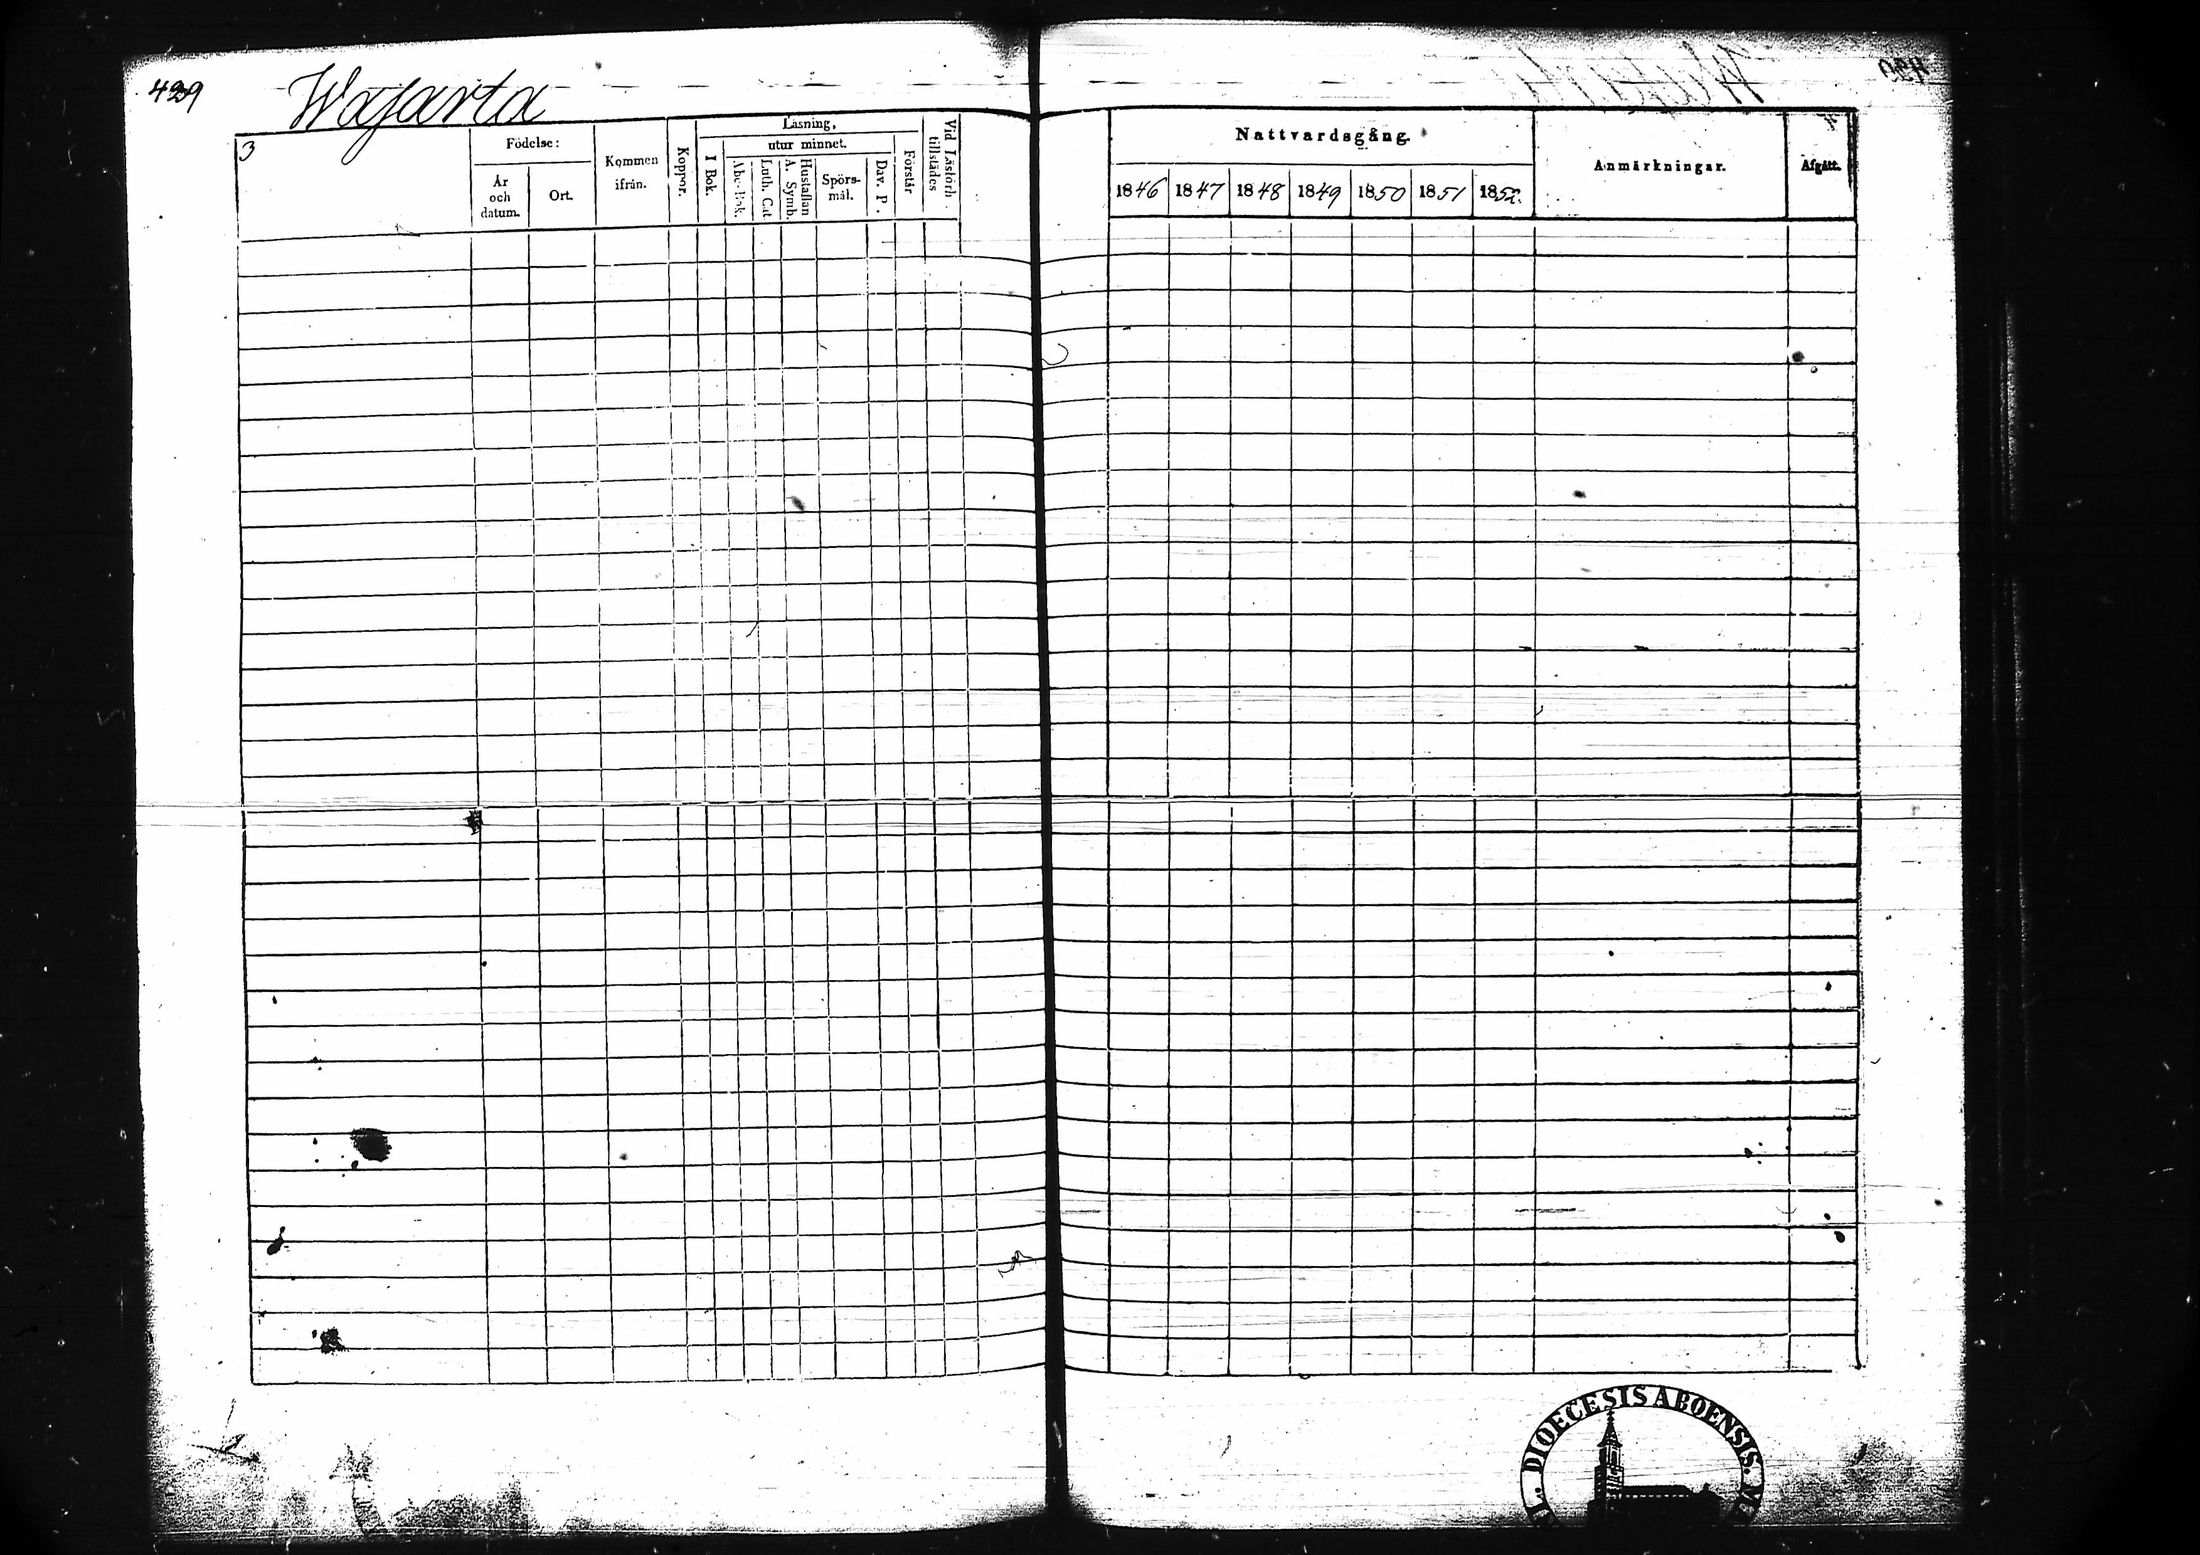 429
Wajarta
3
Födelse:
År och datum.
Ort.
Kommen ifrån.
Koppor.
Läsning,
I Bok.
utur minnet.
Abc-Bok.
Luth. Cat
A. Symb. Hustaflan
Spörs-mål.
Dav. P.
Förstår
Vid Läsförh tillstädes
Nattvardsgång.
1846 1847 1848 1849 1850 1851 1852.
Anmärkningar.
Afgått.
DIOECESIS ABOENSIS.